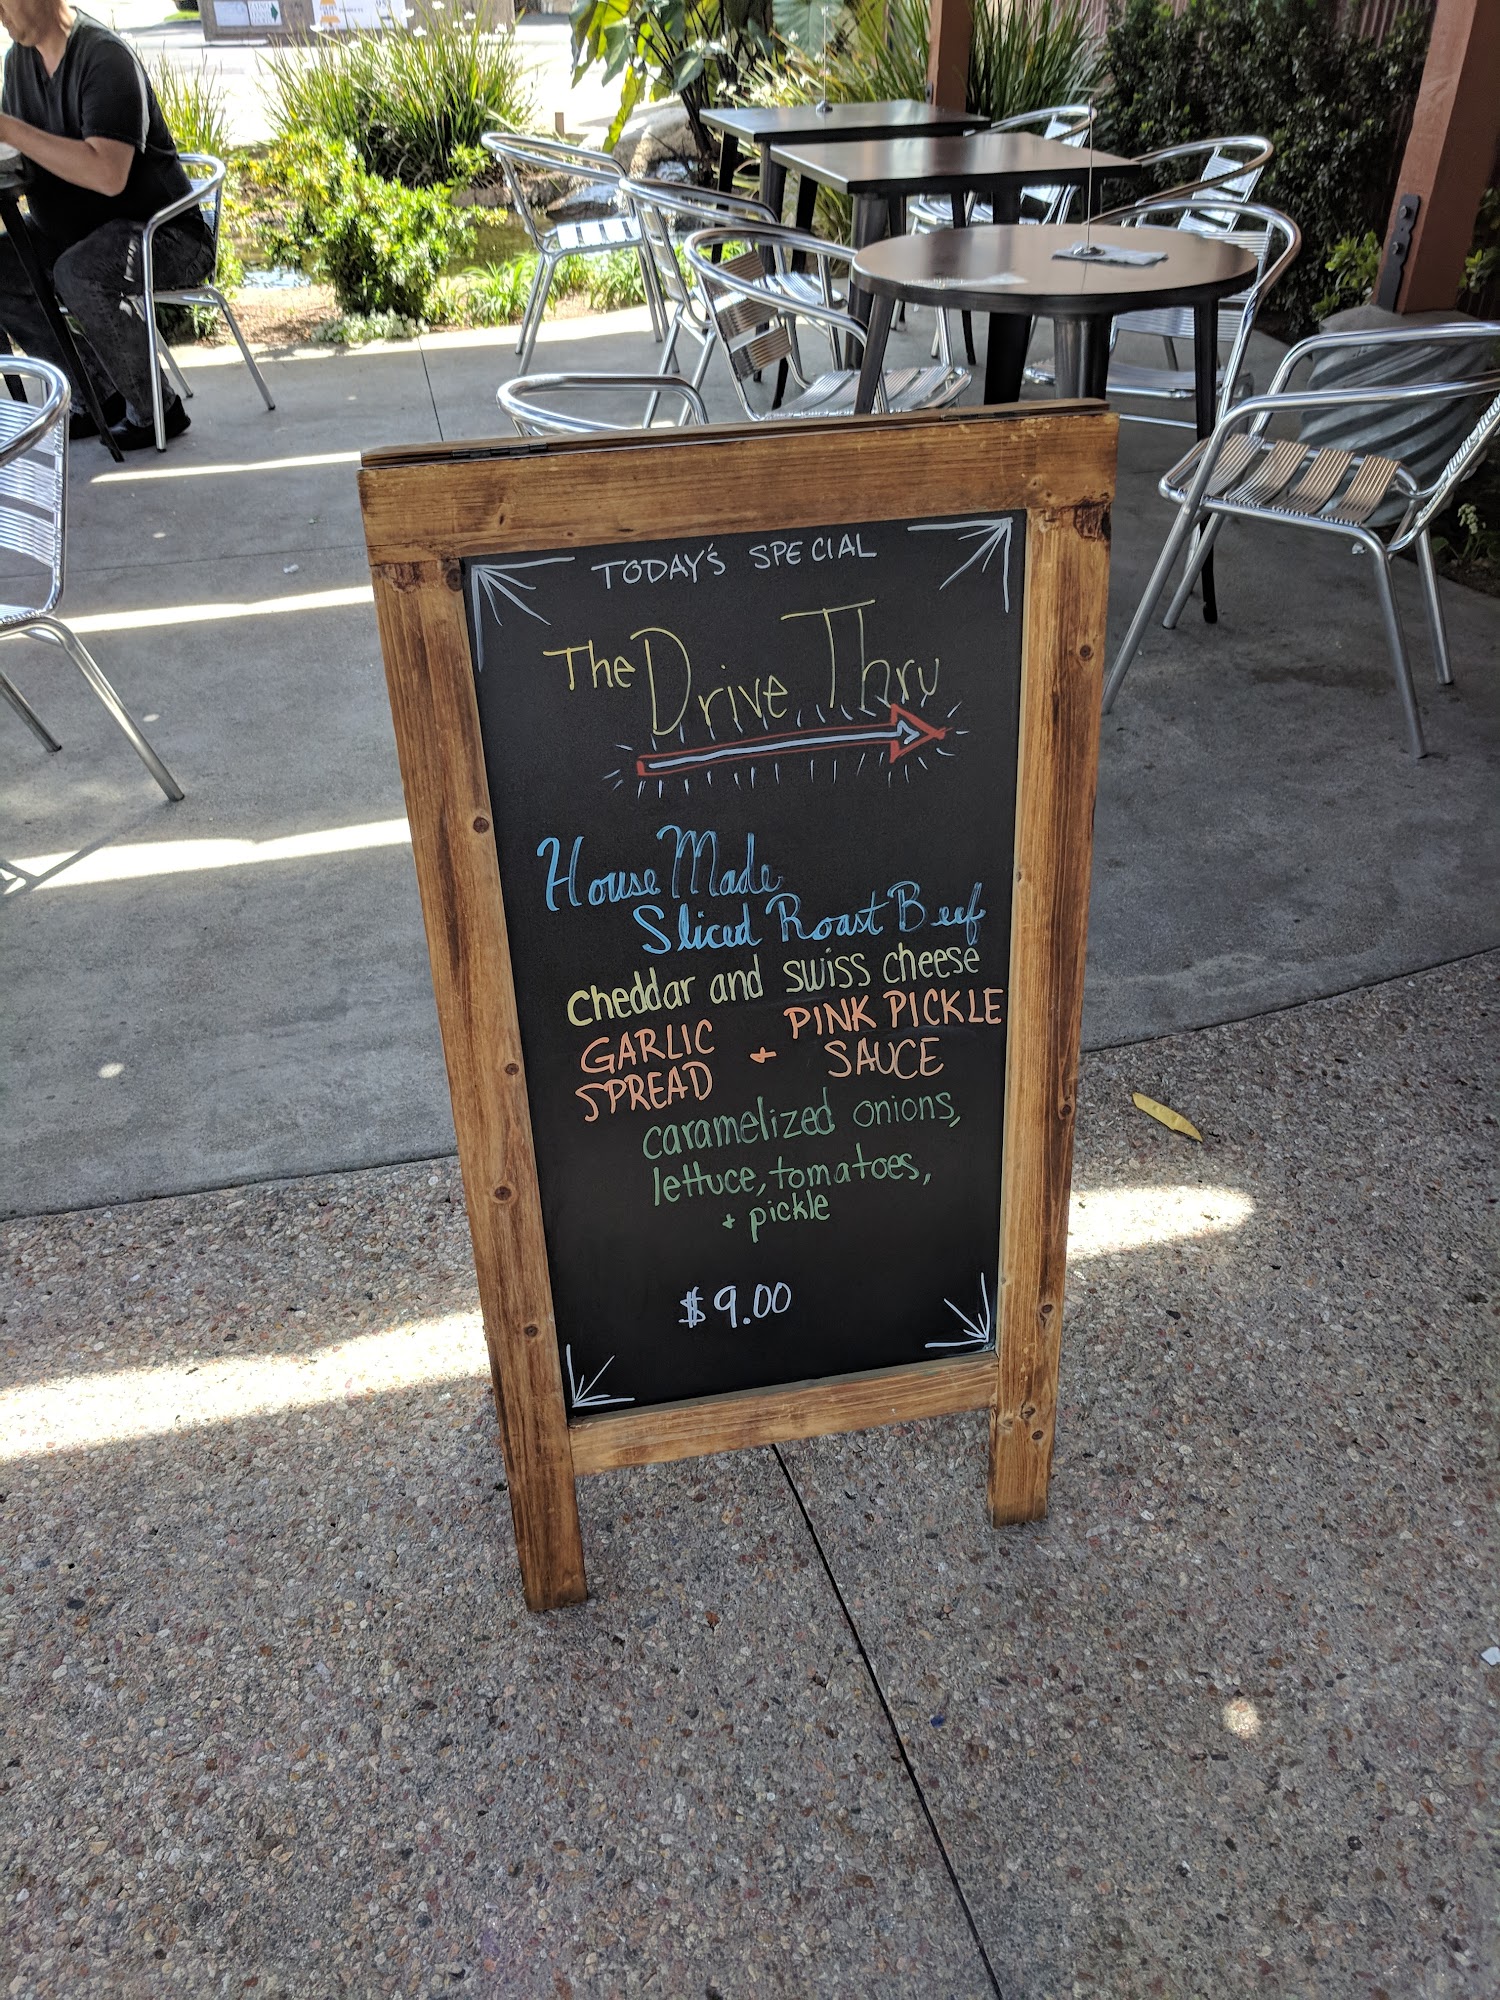 TODAY'S SPECIAL
The Drive Thru
House Made
Sliced Roast Beef
cheddar and swiss cheese
GARLIC SPREAD + PINK PICKLE SAUCE
caramelized onions,
lettuce, tomatoes,
+ pickle
$9.00